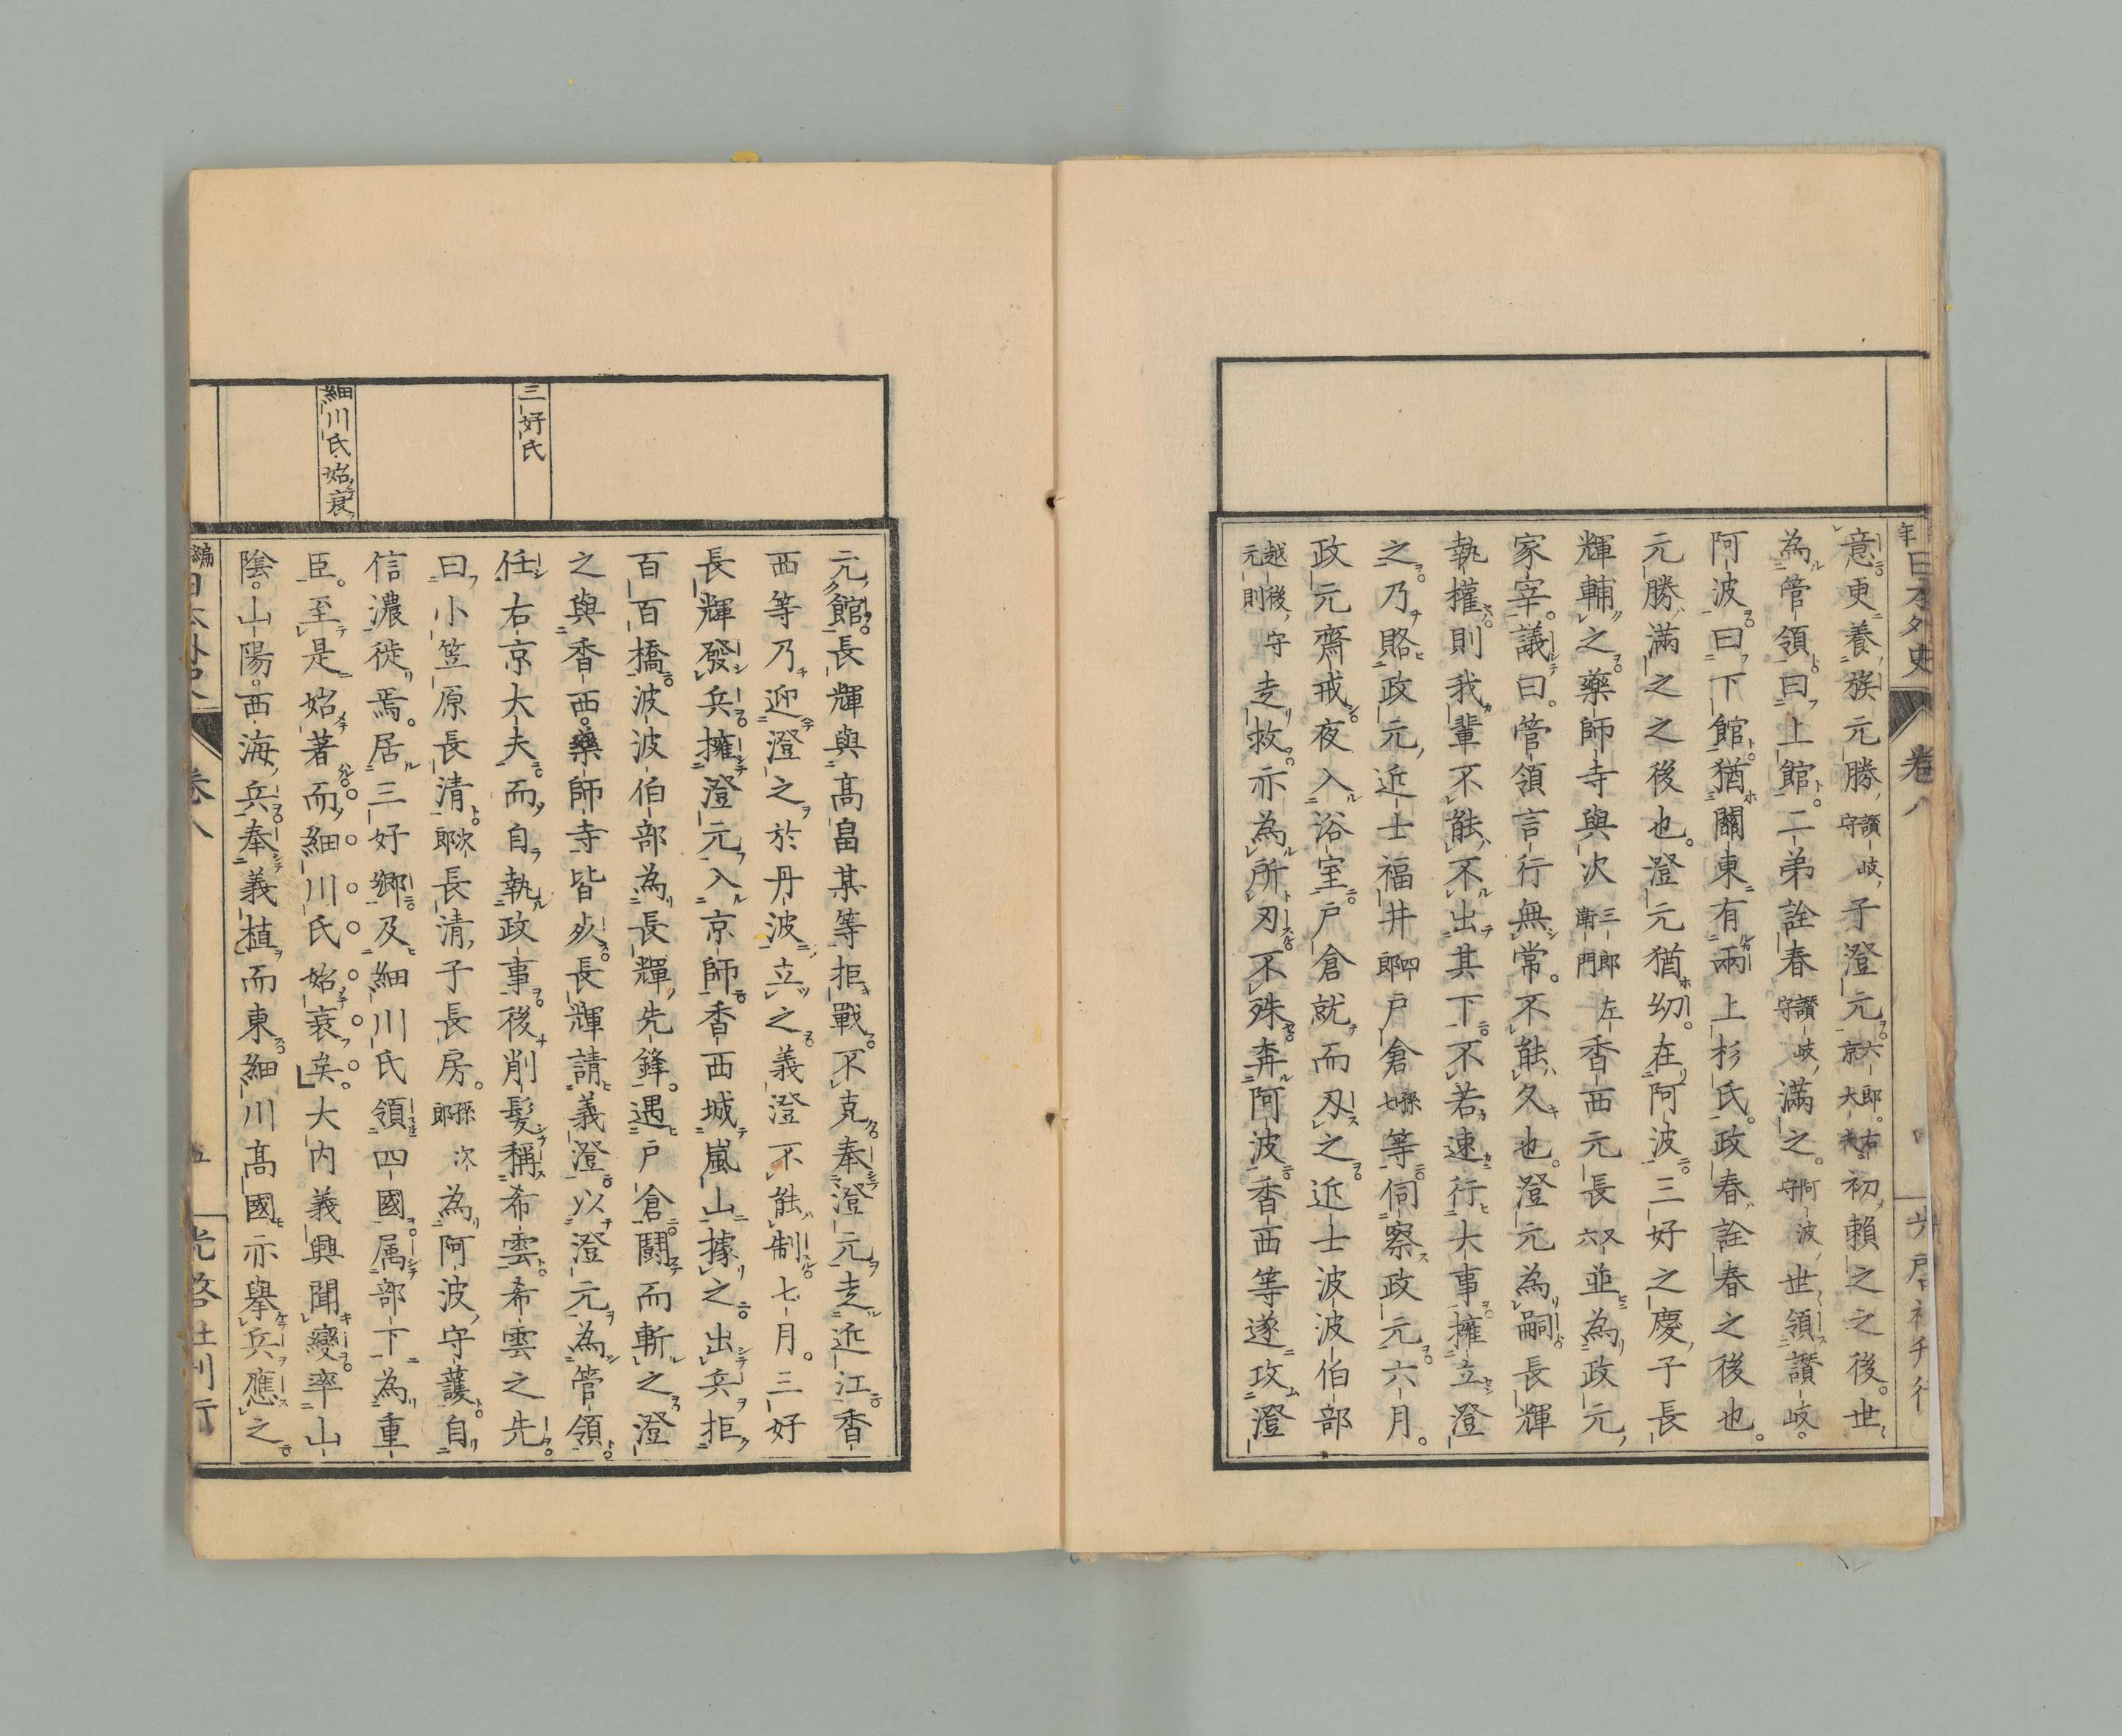 意更養族元勝讃岐守子澄元六郎右京大夫初賴之之後世
為管領曰上館二弟詮春讃岐守滿之阿波守世領讃岐
阿波曰下館猶關東有兩上杉氏政春詮春之後也
元勝滿之之後也澄元猶幼在阿波三好之慶子長
輝輔之藥師寺與次三郎左衛門香西元長又六並為政元
家宰議曰管領言行無常不能久也澄元為嗣長輝
執權則我輩不能不出其下不若速行大事擁立澄
之乃賂政元近士福井四郎戶倉孫七等伺察政元六月
政元齋戒夜入浴室戶倉就而刃之近士波波伯部
越後守元則走救亦為所刃不殊奔阿波香西等遂攻澄
三好氏
細川氏始衰
元館長輝與高畠某等拒戰不克奉澄元走近江香
西等乃迎澄之於丹波立之義澄不能制七月三好
長輝發兵擁澄元入京師香西城嵐山據之出兵拒
百百橋波波伯部為長輝先鋒遇戶倉鬪而斬之澄
之與香西藥師寺皆死長輝請義澄以澄元為管領
任右京大夫而自執政事後削髮稱希雲希雲之先
曰小笠原長清次郎長清子長房孫次郎為阿波守護自
信濃徙焉居三好鄉及細川氏領四國属部下為重
臣至是始著而細川氏始衰矣大内義興聞變率山
陰山陽西海兵奉義植而東細川高國亦擧兵應之
卷八